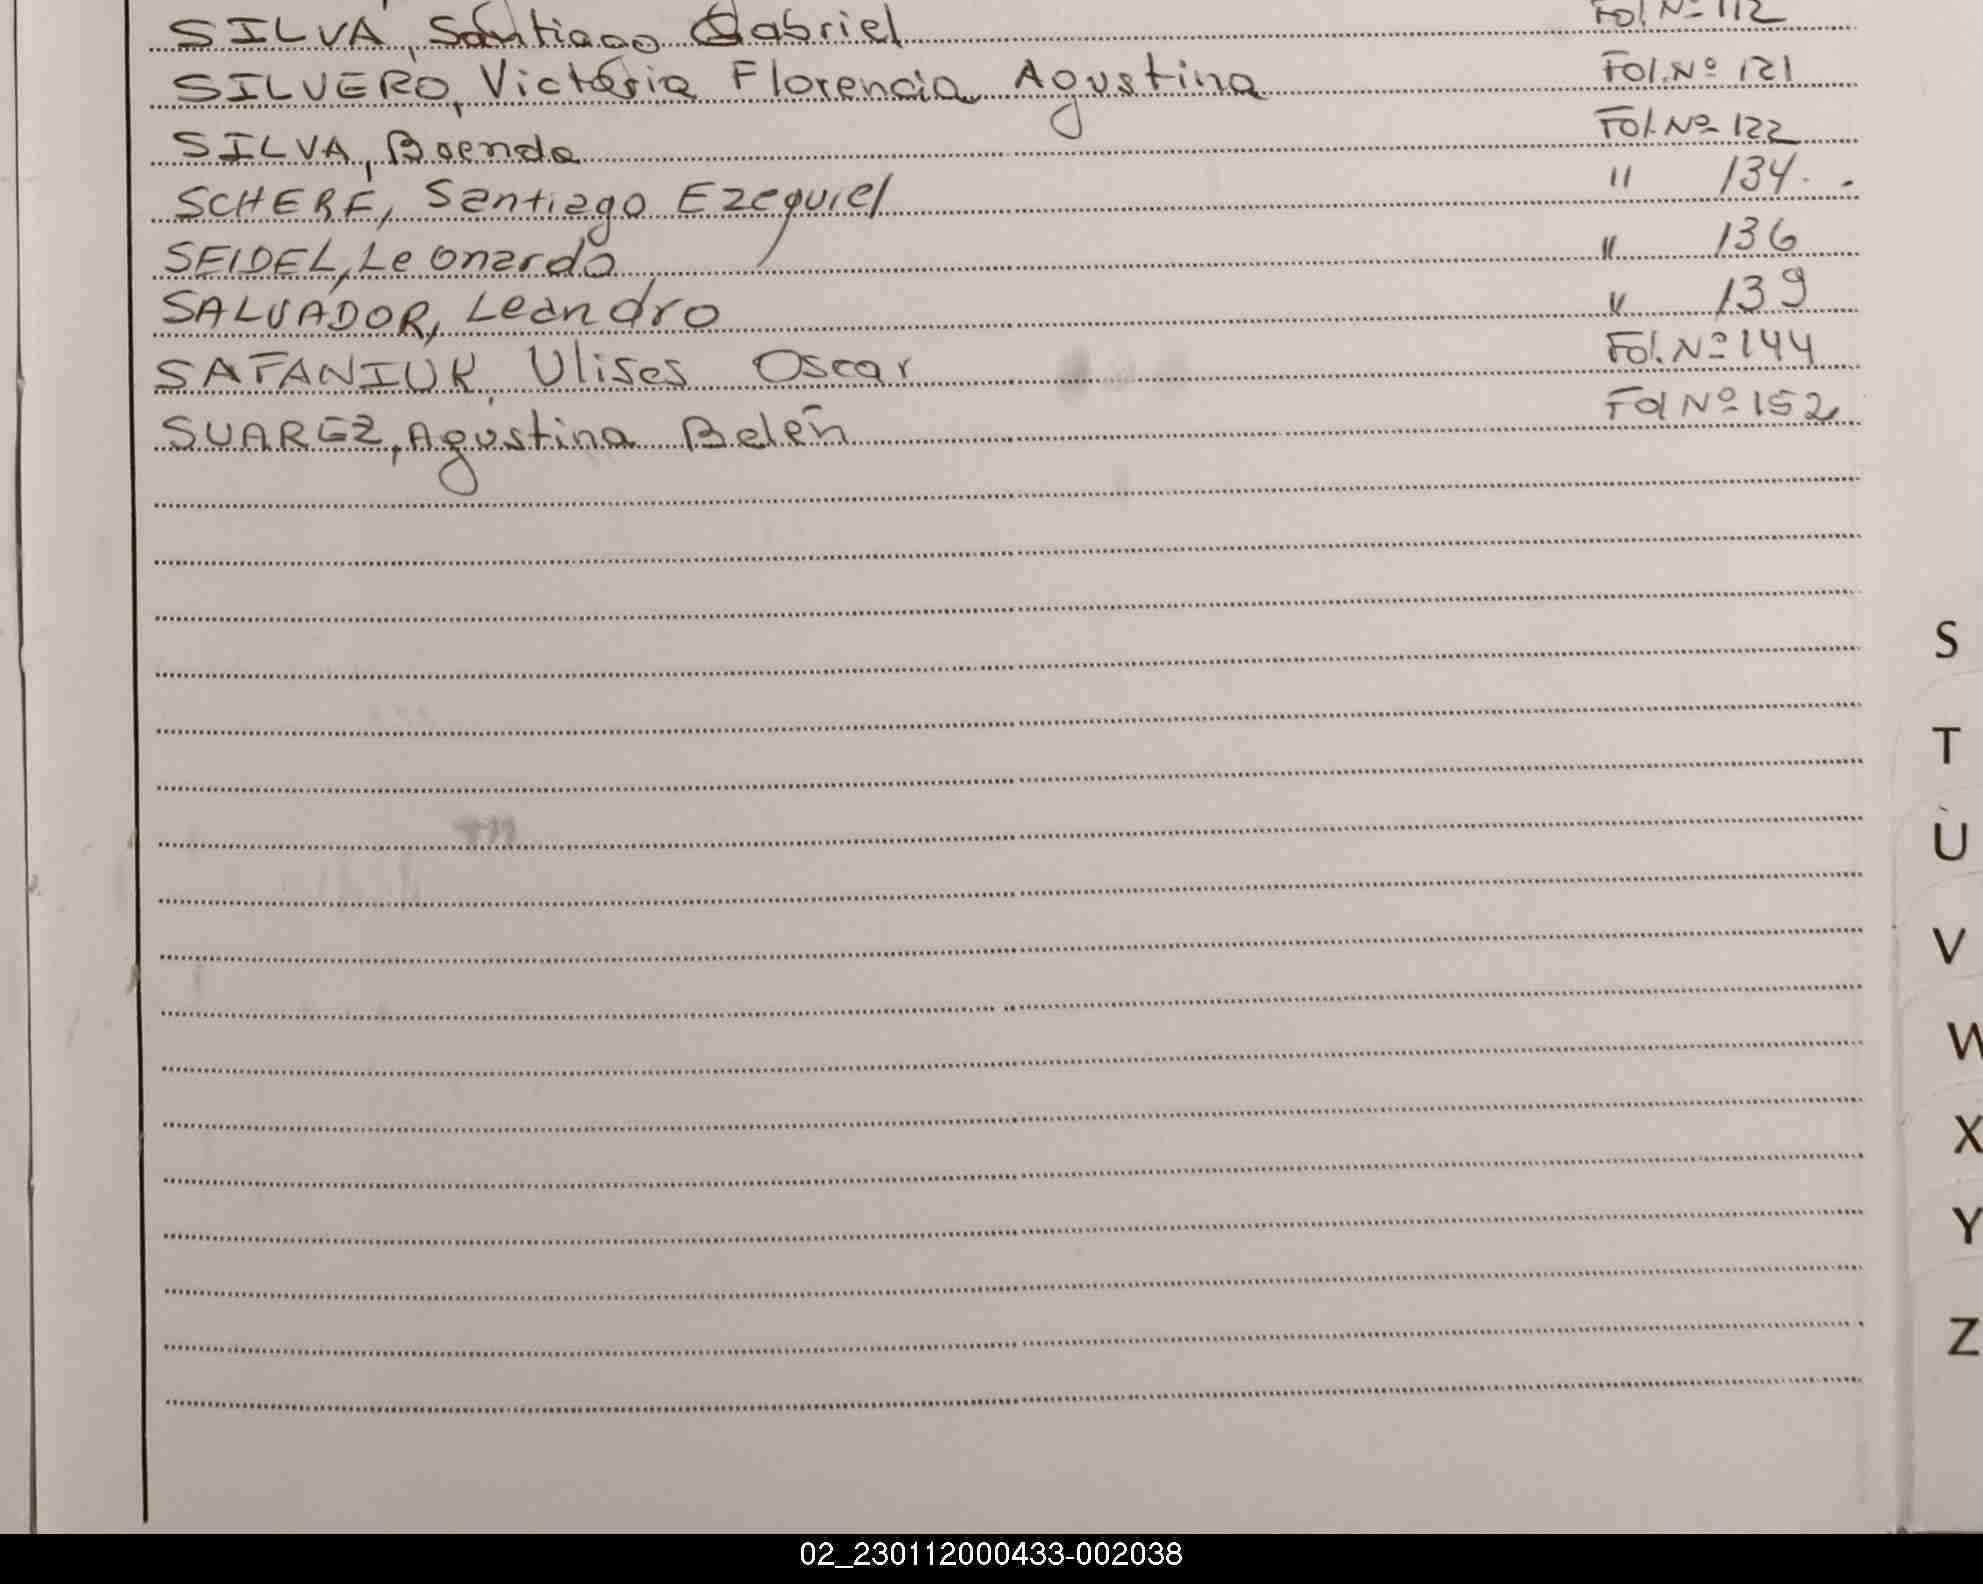 SILVA, Santiago Gabriel Fol. Nº 112
SILVERO, Victoria Florencia Agustina Fol. Nº 121
SILVA, Brenda Fol. Nº 122
SCHERF, Santiago Ezequiel " 134.-
SEIDEL, Leonardo " 136
SALVADOR, Leandro " 139
SAFANIUK, Ulises Oscar Fol. Nº 144
SUAREZ, Agustina Belén Fol Nº 152
S
T
U
V
W
X
Y
Z
02_230112000433-002038